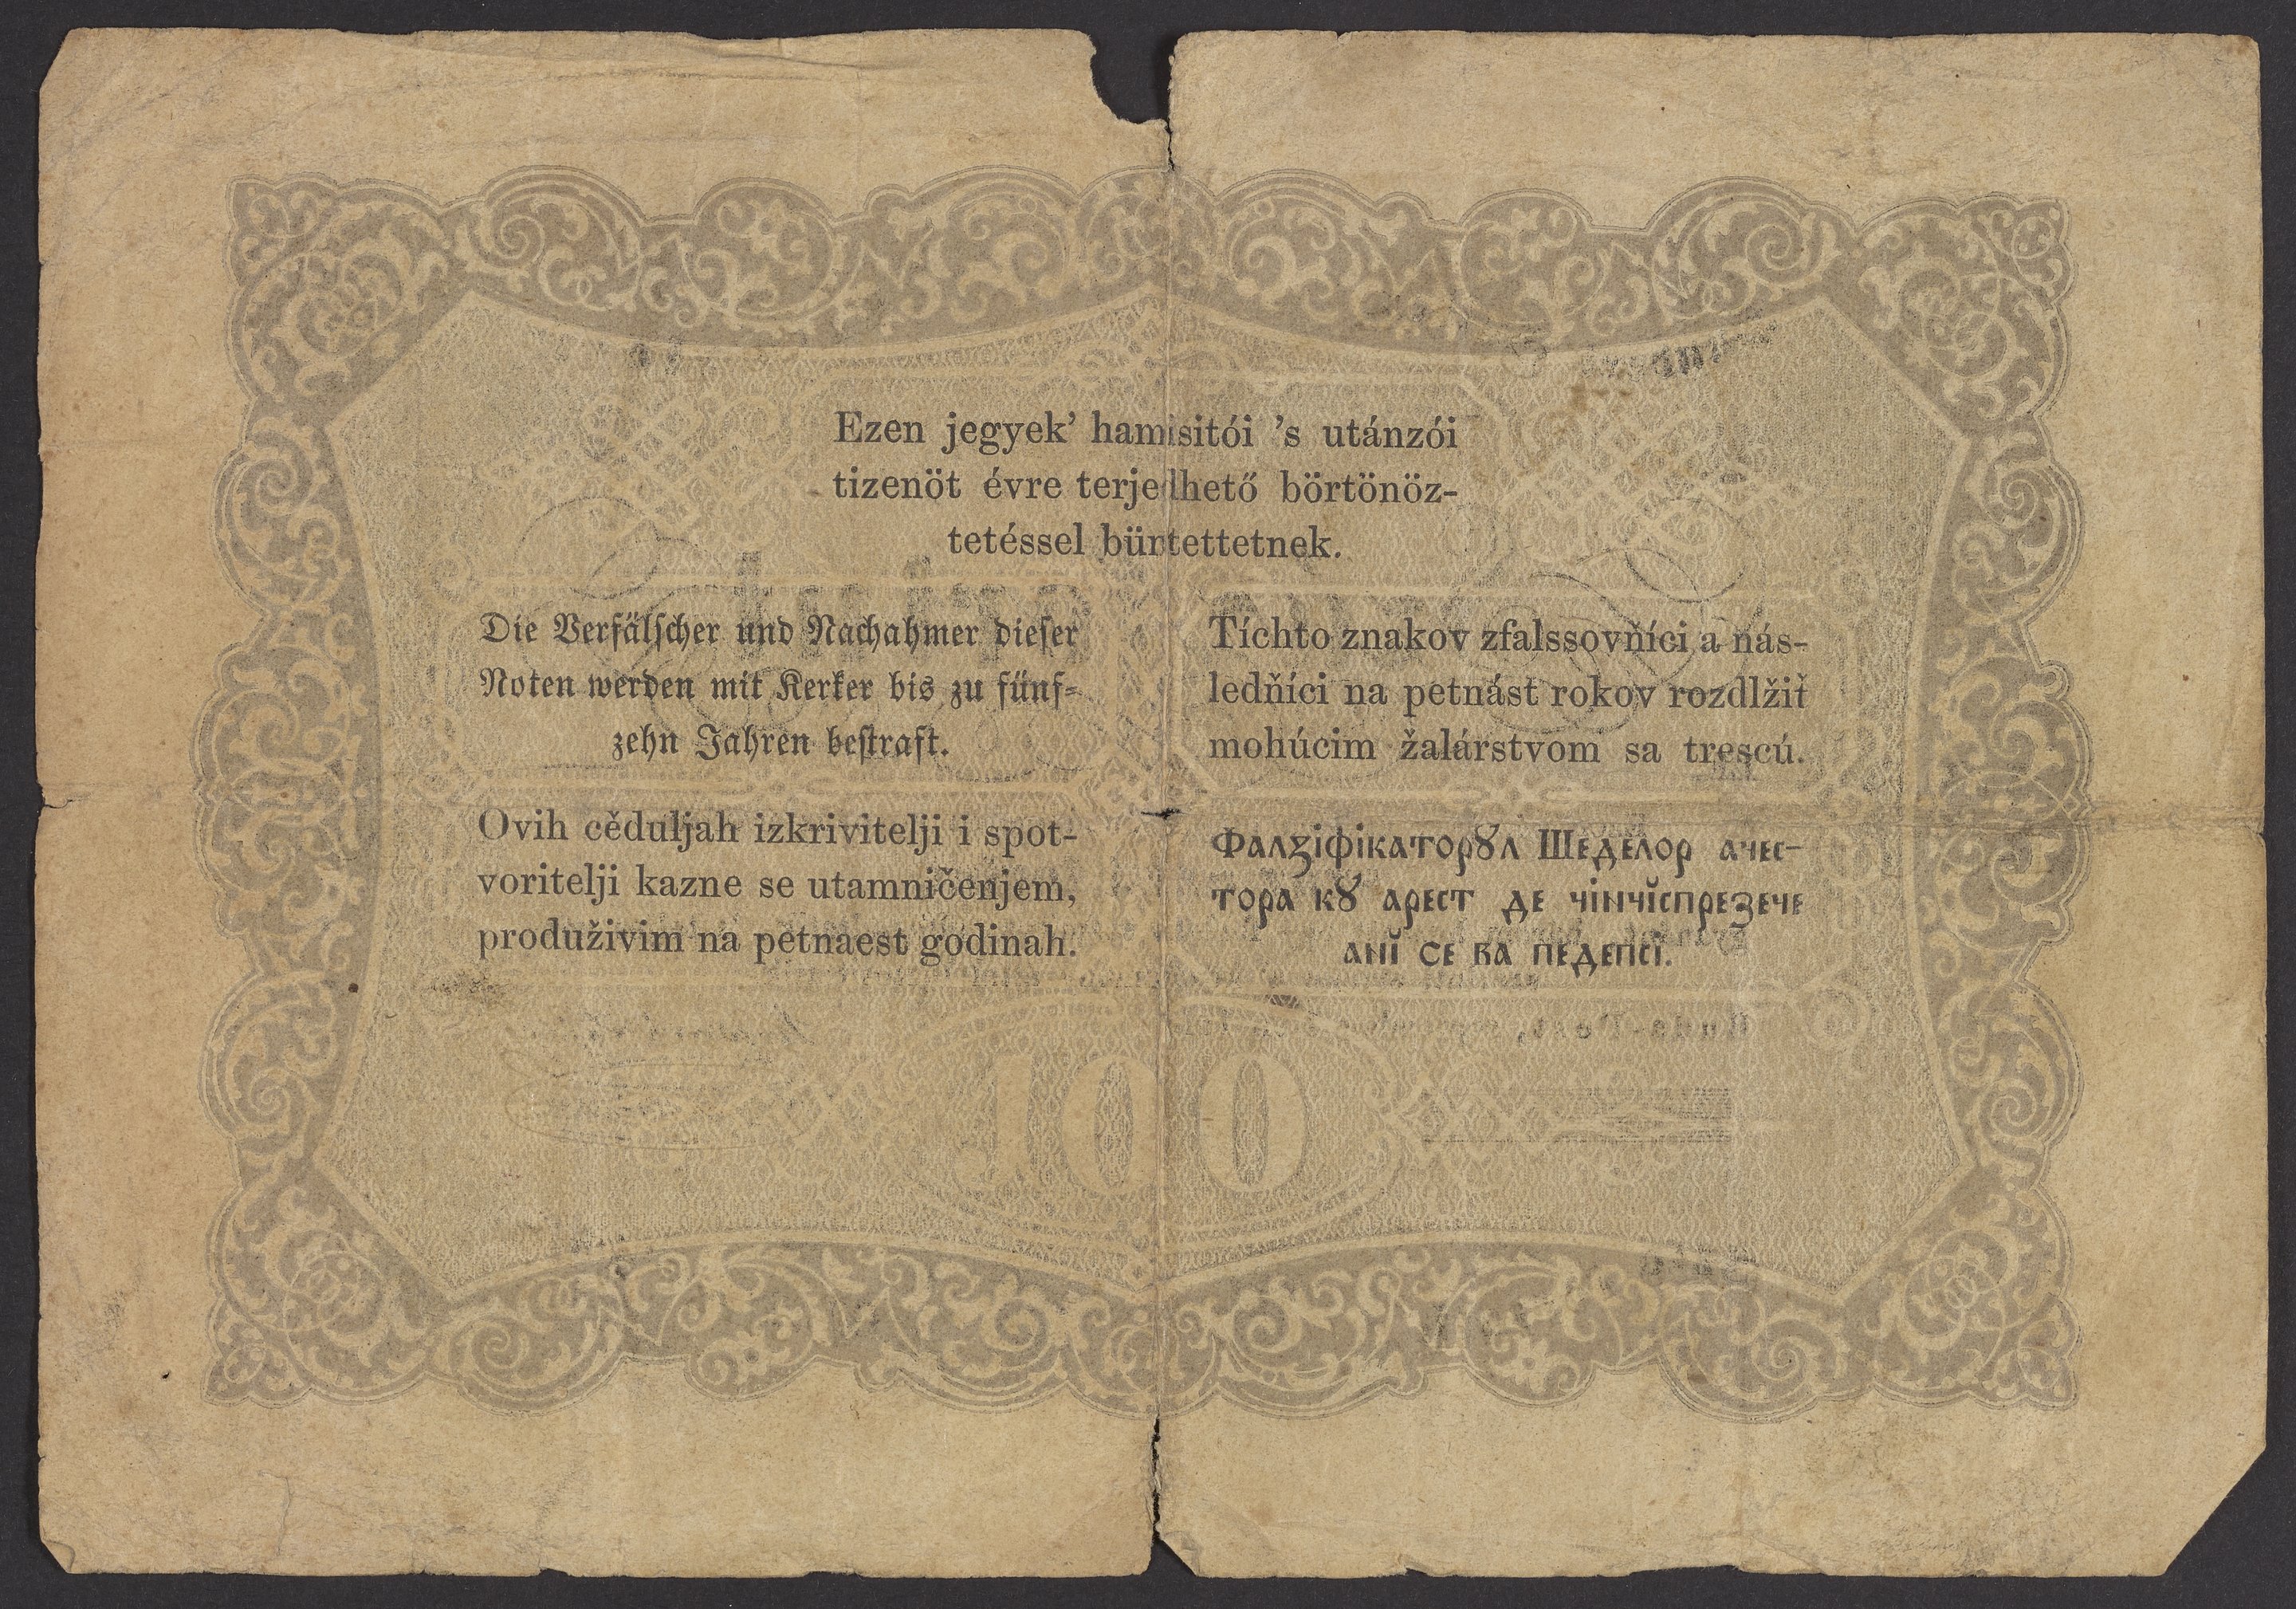 Ezen jegyek' hamisitói 's utánzói
tizenöt évre terjedhető börtönöz-
tetéssel büntettetnek.
Die Verfälscher und Nachahmer dieser
Noten werden mit Kerker bis zu fünf-
zehn Jahren bestraft.
Tíchto znakov zfalssovňíci a nás-
ledňíci na petnást rokov rozdlžiť
mohúcim žalárstvom sa trescú.
Ovih cěduljah izkrivitelji i spot-
voritelji kazne se utamničenjem,
produživim na petnaest godinah.
Фалзіфікаторꙋл Шеделор ачес-
тора кꙋ арест де чінчĭспрезече
анĭ се ва педепсі.
100